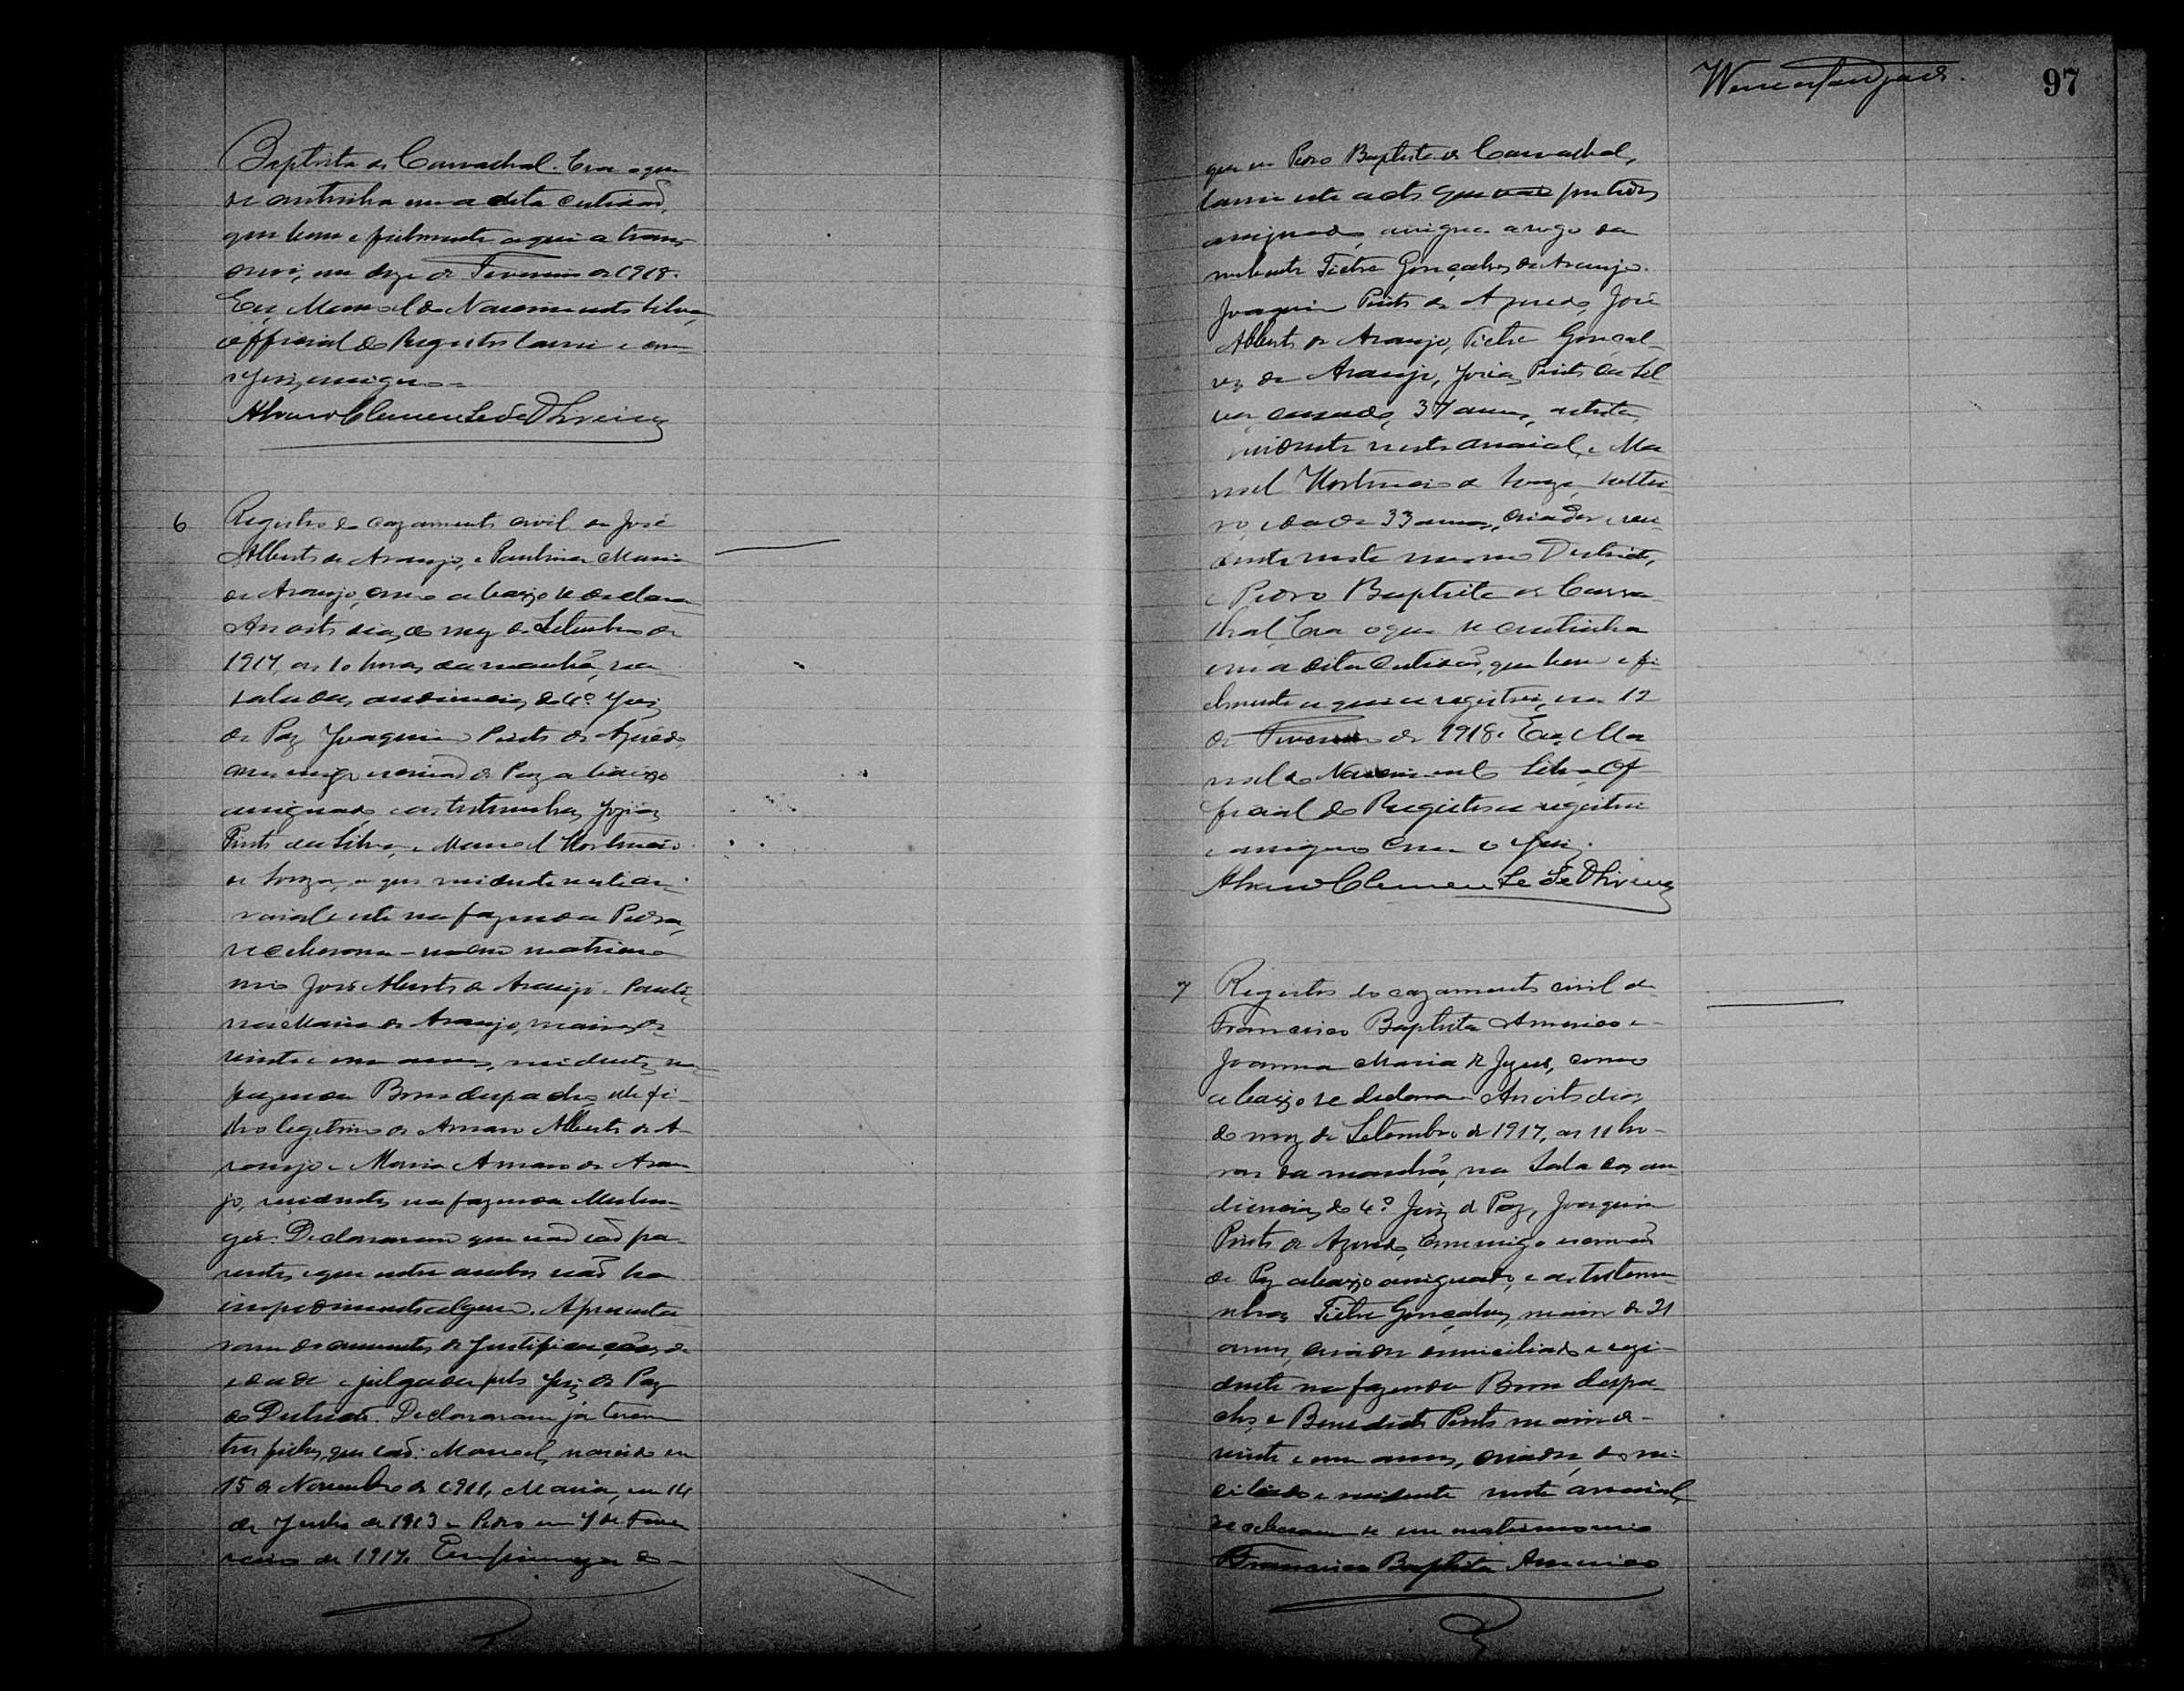 97
Baptista de Carvalhal. Era o que
se continha em a dita certidaõ,
que bem e fielmente aqui a trans-
crevi, em doze de Fevereiro de 1918.
Eu, Manoel do Nascimento Silva,
official do Registro lavrei e com
o Juiz, assigno.
Alvaro Clemente de Oliveira
6
Registro do cazamento civil de José
Alberto de Araujo, e Paulina Maria
de Araujo, como abaixo se declara
Aos oito dias do mez de Setembro de
1917, as 10 horas da manhã, na
sala das audiencias do 4º Juiz
de Paz Joaquim Pinto de Azevedo
commigo escrivaõ de Paz abaixo
assignado e as testemunhas Jozias
Pinto da Silva, e Manoel
de Souza, aquelle residente neste ar-
raial e este na fazenda Pedra,
receberam-se em matrimo-
nio José Alberto de Araujo e Pauli-
na Maria de Araujo, maiores de
vinte e um annos, residentes na
fazenda Bom despacho, elle fi-
lho legitimo de Amaro Alberto de A-
raujo e Maria Amaro de Arau-
jo, residentes na fazenda
Declararam que naõ saõ pa-
rentes e que entre ambos naõ ha
impedimento algum. Apresenta-
ram documentos de Justificações de
edade e julgada pelo Juiz de Paz
do Districto. Declararam já terem
tres filhos, que saõ: Manoel, nascido em
15 de Novembro de 1911, Maria, em 14
de Junho de 1913 e Pedro em 4 de Feve
reiro de 1917. Em firmeza do
que eu Pedro Baptista de Carvalhal,
lavrei este acto que vae por todos
assignado, assigna a rogo da
nubente Tietre Gonçalves de Araujo.
Joaquim Pinto de Azevedo, José
Alberto de Araujo, Tietre Gonçal-
ves de Araujo, Jozias Pinto da Sil
va, casado, 37 annos, artista,
residente neste arraial, e Ma
noel de Souza, soltei
ro, edade 33 annos, criador e resi
dente neste mesmo Districto,
e Pedro Baptista de Carva
lhal. Era o que se continha
em a dita certidaõ, que bem e fi
elmente aqui registrei, em 12
de Fevereiro de 1918. Eu, Ma
noel do Nascimento Silva, Of-
ficial do Registro a registrei
e assigno com o Juiz.
Alvaro Clemente de Oliveira
7
Registro do cazamento civil de
Francisco Baptista Americo e
Joanna Maria de Jezus, como
abaixo se declara. Aos oito dias
do mez de Setembro de 1917, as 11 ho-
ras da manhã, na Sala das au
diencias do 4º Juiz de Paz, Joaquim
Pinto de Azevedo, commigo escrivaõ
de Paz abaixo assignado, e as testemu-
nhas Tietre Gonçalves, maior de 21
annos, criador domiciliado e rezi-
dente na fazenda Bom despa-
cho, e Benedicto Pinto maior de
vinte e um annos, criador, domi-
ciliado e residente neste arraial,
receberam-se em matrimonio
Francisco Baptista Americo